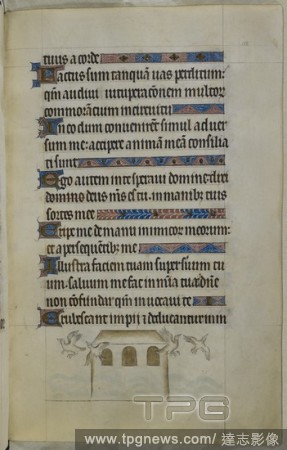 tuus a corde
Factus sum tanquam uas perditum:
qm audiui uitupationem multor
commorancium in circuitu
In eo dum conuenirent simul aduer
sum me: accipere animam meam consilia
ti sunt
Ego autem in te speraui domine: dixi
domino deus ms es tu. in manib; tuis
sortes mee
Eripe me de manu inimicor meorum:
et a persequentib; me
Illustra faciem tuam super seruum tu
um. saluum me fac in mia tua dne
non confundar qm inuocaui te
Erubescant impii et deducantur in in
TPG
www.tpgnews.com / 達志影像